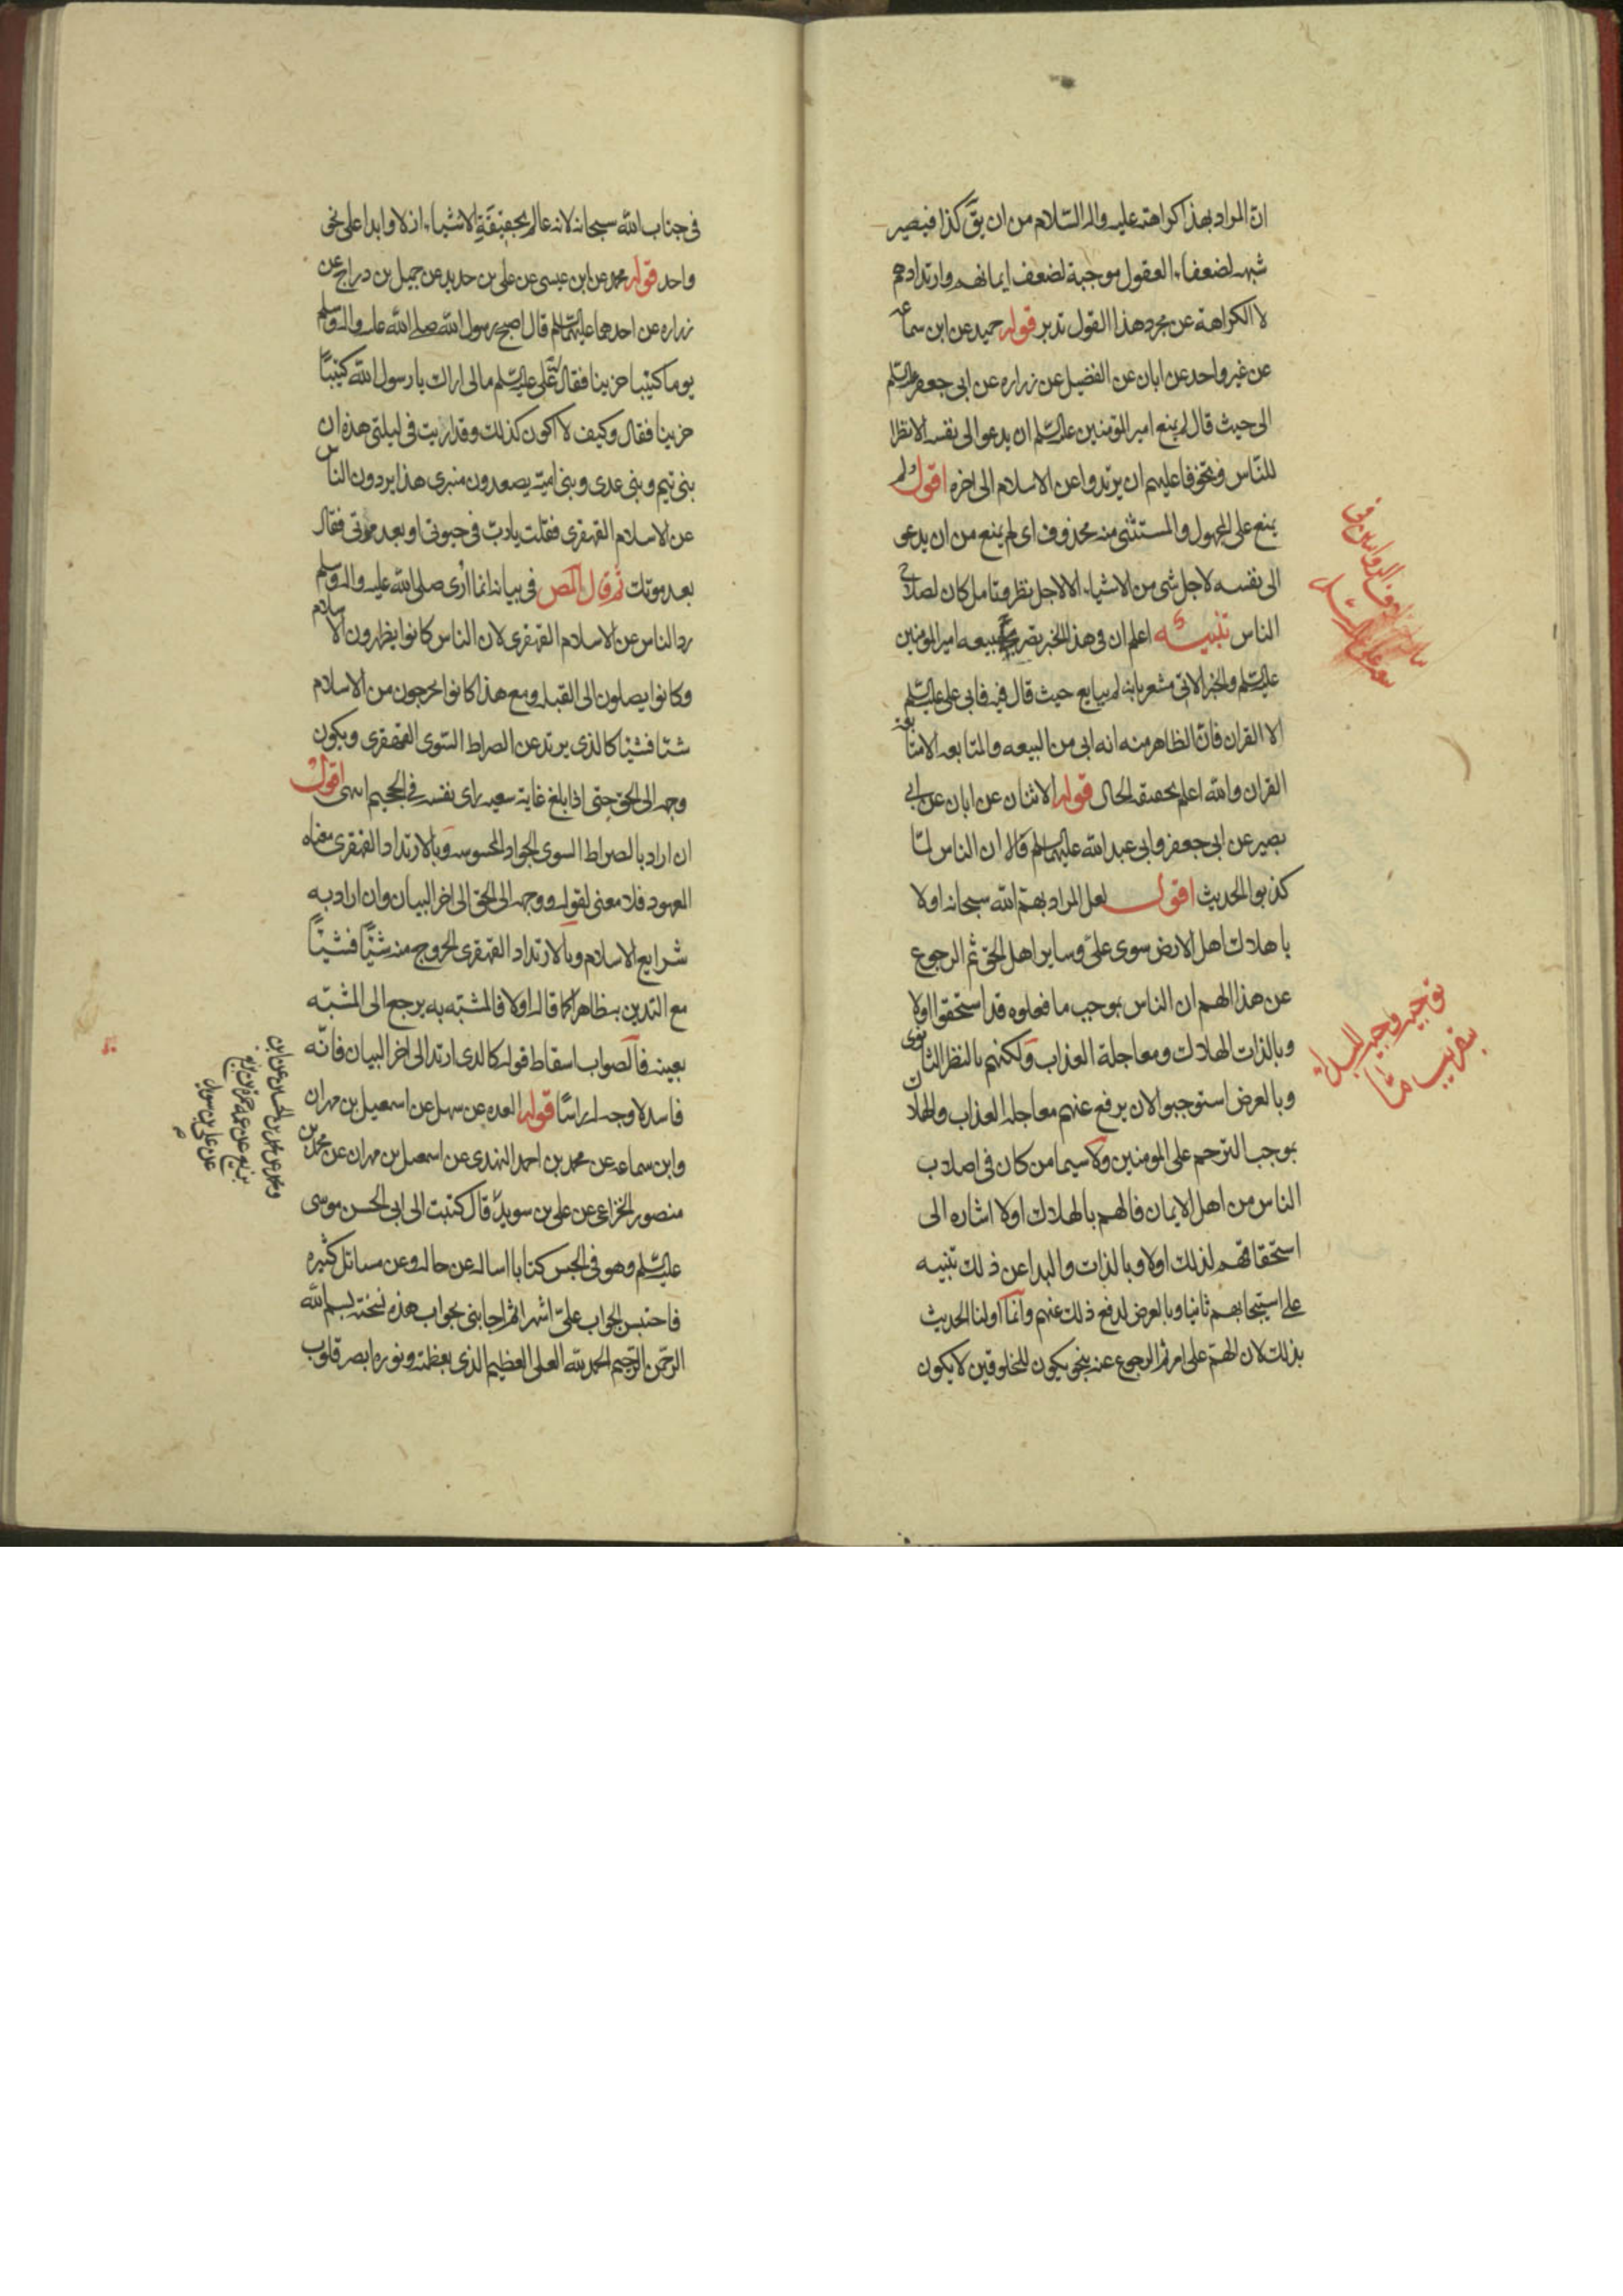 ان المراد بهذا كراهته عليه واله السلام من ان يق كذا فيصير
شبهه لضعفاء العقول موجبة لضعف ايمانهم وارتدادهم
لا الكراهة عن مجرد هذا القول تدبر قوله حميد عن ابن سماعه
عن غير واحد عن ابان عن الفضيل عن زراره عن ابى جعفر عليه السلم
الى حيث قال لم يمنع امير المؤمنين عليه السلم ان يدعو الى نفسه الا نظرا
للناس وتخوفا عليهم ان يرتدوا عن الاسلام الى اخره اقول ولم
يمنع على المجهول والمستثنى منه محذوف اى لم يمنع من ان يدعو
الى نفسه لاجل شى من الاشياء الا لاجل نظر وتامل كان لصلاح
الناس تنبيه اعلم ان فى هذا الخبر تصريح ببيعه امير المؤمنين
عليه السلم والخبر الاتى مشعر بانه لم يبايع حيث قال فيه فابى على عليه السلم
الا القران فان الظاهر منه انه ابى من البيعه والمتابعه الا متابعه
القران والله اعلم بحقيقه الحال قوله الاثنان عن ابان عن ابى
بصير عن ابى جعفر وابى عبد الله عليهما السلم قالا ان الناس لما
كذبوا الحديث اقول لعل المراد بهم الله سبحانه اولا
باهلاك اهل الارض سوى على وساير اهل الحق ثم الرجوع
عن هذا الهم ان الناس بموجب ما فعلوه قد استحقوا اولا
وبالذات الهلاك ومعاجلة العذاب ولكنهم بالنظر الثانوى
وبالعرض استوجبوا لان يرفع عنهم معاجله العذاب والهلاك
بموجب الترحم على المومنين ولا سيما من كان فى اصلاب
الناس من اهل الايمان فالهم بالهلاك اولا اشاره الى
استحقاقهم لذلك اولا وبالذات والبدا عن ذلك تنبيه
على استيجابهم ثانيا وبالعرض لدفع ذلك عنهم وانما اولنا الحديث
بذلك لان الهم على امر ثم الرجوع عنه بنحو يكون للمخلوقين لا يكون
توجيه وجيه للبداء
بتقريب منا
فى جناب الله سبحانه لانه عالم بحقيقة الاشياء ازلا وابدا على نحو
واحد قوله محمد عن ابن عيسى عن على بن حديد عن جميل بن دراج عن
زراره عن احدهما عليهما السلم قال اصبح رسول الله صلى الله عليه واله وسلم
يوما كئيبا حزينا فقال له على عليه السلم مالى اراك يا رسول الله كئيبا
حزينا فقال وكيف لا اكون كذلك وقد اريت فى ليلتى هذه ان
بنى تيم وبنى عدى وبنى امية يصعدون منبرى هذا يردون الناس
عن الاسلام القهقرى فقلت يا رب فى حيوتى او بعد موتى فقال
بعد موتك ثم قال المص فى بيانه انما ارى صلى الله عليه واله وسلم
رد الناس عن الاسلام القهقرى لان الناس كانوا يظهرون الاسلام
وكانوا يصلون الى القبله ومع هذا كانوا يخرجون من الاسلام
شيئا فشيئا كالذى يرتد عن الصراط السوى القهقرى ويكون
وجهه الى الحق حتى اذا بلغ غاية سعيه راى نفسه فى الجحيم انتهى اقول
ان اراد بالصراط السوى الجواد المحسوسه وبالارتداد القهقرى معناه
المعهود فلا معنى لقوله ووجهه الى الحق الى اخر البيان وان اراد به
شرايع الاسلام وبالارتداد القهقرى الخروج منه شيئا فشيئا
مع التدين بظاهرا كما قاله اولا فالمشبه به يرجع الى المشبه
بعينه فالصواب اسقاط قوله كالذى ارتد الى اخر البيان فانه
فاسد لا وجه له راسا قوله العده عن سهل عن اسمعيل بن مهران
وابن سماعه عن محمد بن احمد النهدى عن اسمعيل بن مهران عن محمد بن
منصور الخزاعى عن على بن سويد قال كتبت الى ابى الحسن موسى
عليه السلم وهو فى الحبس كتابا اساله عن حاله وعن مسائل كثيره
فاحتبس الجواب على اشهر ثم اجابنى بجواب هذه نسخته بسم الله
الرحمن الرحيم الحمد لله العلى العظيم الذى بعظمته ونوره ابصر قلوب
ومحمد عن محمد بن الحسين عن ابن
بزيع عن عمه حمزه بن بزيع
عن على بن سويد